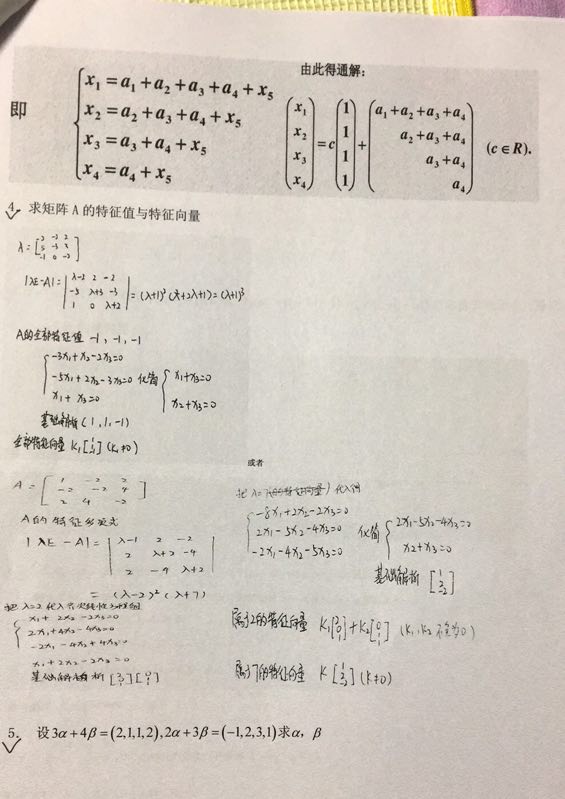 由此得通解:
即
x₁ = a₁ + a₂ + a₃ + a₄ + x₅
x₂ = a₂ + a₃ + a₄ + x₅
x₃ = a₃ + a₄ + x₅
x₄ = a₄ + x₅
(x₁ x₂ x₃ x₄) = c (1 1 1 1) + (a₁+a₂+a₃+a₄ a₂+a₃+a₄ a₃+a₄ a₄) (c∈R).
4. 求矩阵 A 的特征值与特征向量
|λE-A| = |λ-2 2 -2
-5 λ+3 -3
1 0 λ+2| = (λ+1)² (λ²+2λ+1) = (λ+1)³
A的全部特征值 -1, -1, -1
-3x₁+x₂-2x₃=0
-5x₁+2x₂-3x₃=0 化简 x₁+x₃=0
x₁+x₃=0 x₂+x₃=0
基础解析 (1, 1, -1)
全部特征向量 K₁[1 1 -1] (K₁≠0)
或者
A = [1 -2 2
-2 -2 4
2 4 -2]
A的特征多项式
|λE-A| = |λ-1 2 -2
2 λ+2 -4
-2 -4 λ+2|
= (λ-2)² (λ+7)
把λ=2代入齐次线性方程组
x₁+2x₂-2x₃=0
2x₁+4x₂-4x₃=0
-2x₁-4x₂+4x₃=0
x₁+2x₂-2x₃=0
代入得
-8x₁+2x₂-2x₃=0
2x₁-5x₂-4x₃=0 化简 2x₁-5x₂-4x₃=0
-2x₁-4x₂-5x₃=0 x₂+x₃=0
基础解析
属于2的特征向量 (K₁,K₂ 不全为0)
属于7的特征向量 (K≠0)
5. 设3α+4β=(2,1,1,2),2α+3β=(-1,2,3,1)求α, β